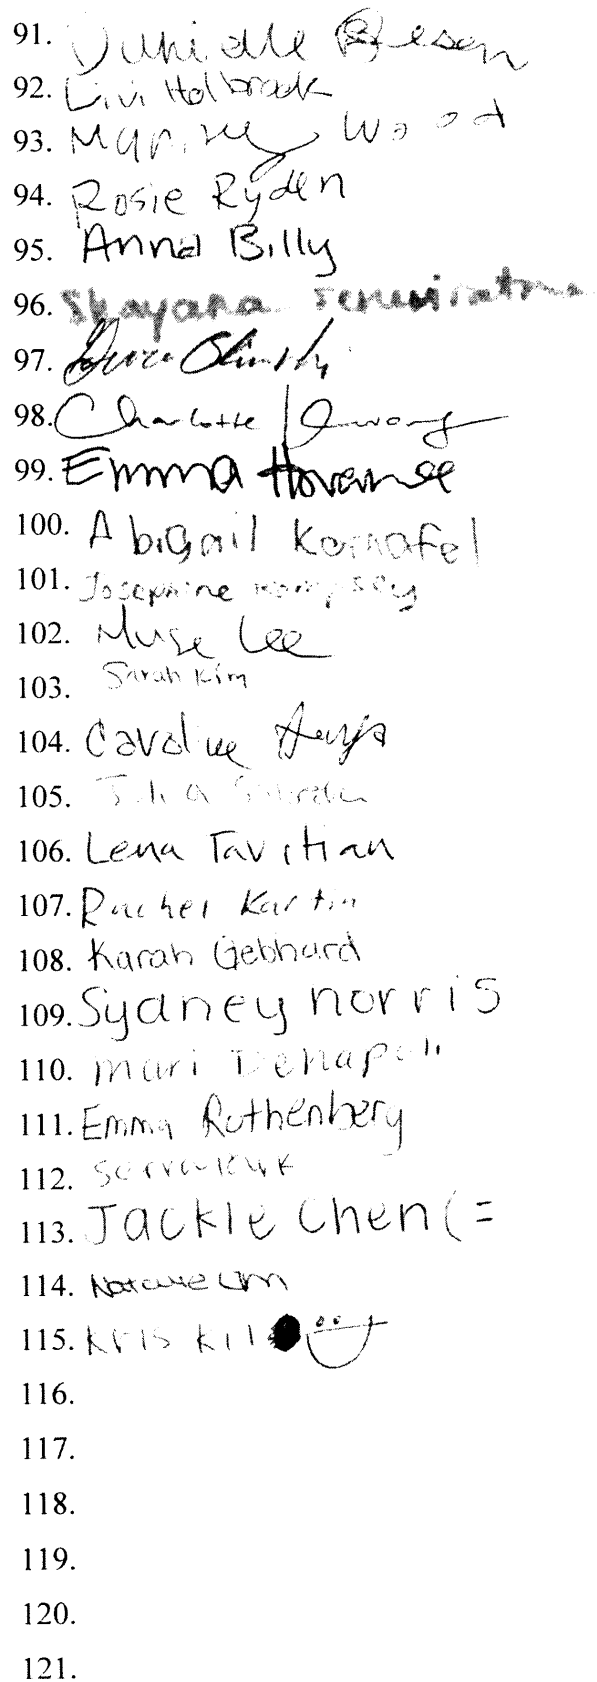 91. Danielle
92. Livi Holbrook
93. Wood
94. Rosie Ryden
95. Anna Billy
96.
97.
98. Charlotte
99. Emma
100. Abigail Kornafel
101. Josephine
102. Muse Lee
103. Sarah Kim
104. Caroline
105. Julia
106. Lena Tavitian
107. Rachel Kartin
108. Karah Gebhard
109. Sydney norris
110. mari Denapoli
111. Emma Rothenberg
112.
113. Jackie Chen (=
114. Natalie Um
115. Kris
116.
117.
118.
119.
120.
121.